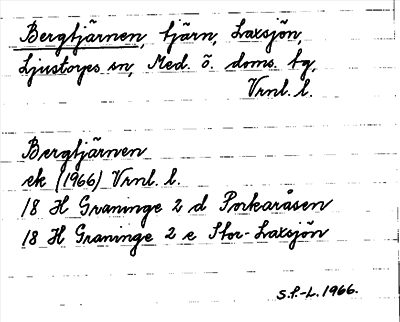 Bergtjärnen, tjärn, Laxsjön,
Ljustorps sn, Med. ö. doms. tg,
Vrnl. l.
Bergtjärnen
ek (1966) Vrnl. l.
18 H Graninge 2 d Porkaråsen
18 H Graninge 2 e Stor-Laxsjön
S.F.-L. 1966.